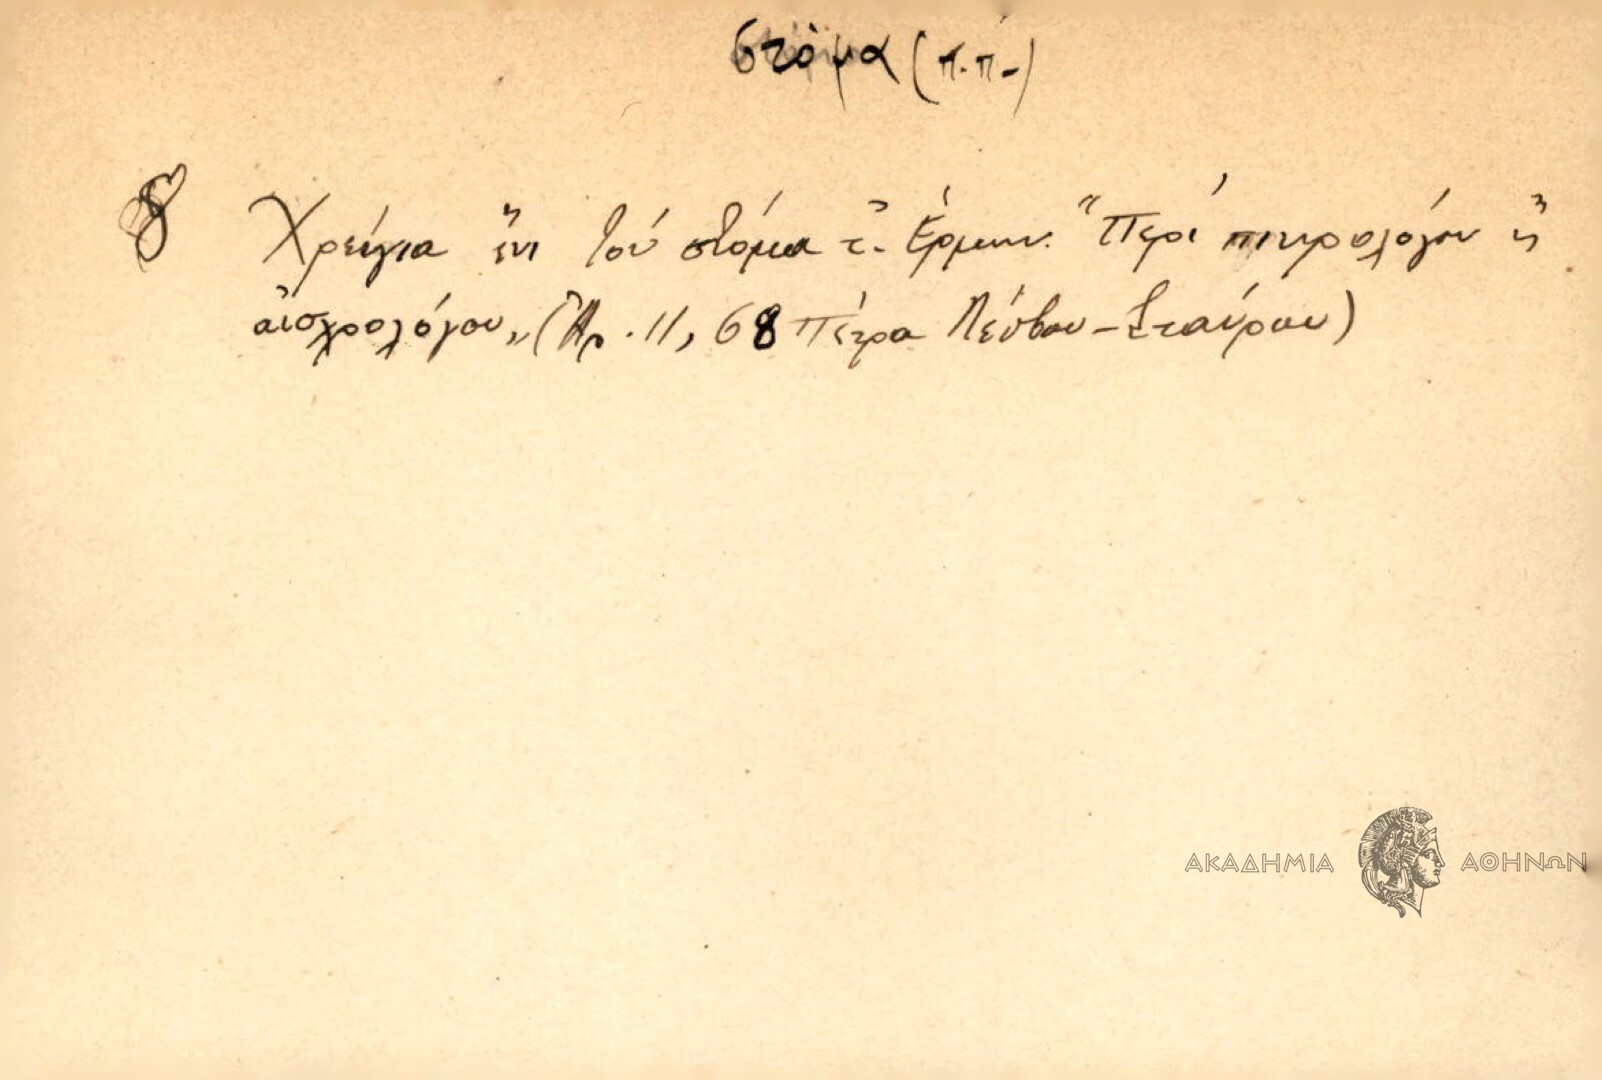 στόμα (π.π.)
8 Χρείγια ἔνι τοὺ στόμα τ. Ἑρμην. "Περὶ πικρολόγου ἢ
αἰσχρολόγου" (Ἀρ. 11, 68 Πέτρα Λέσβου - Σταύρου)
ΑΚΑΔΗΜΙΑ ΑΘΗΝΩΝ